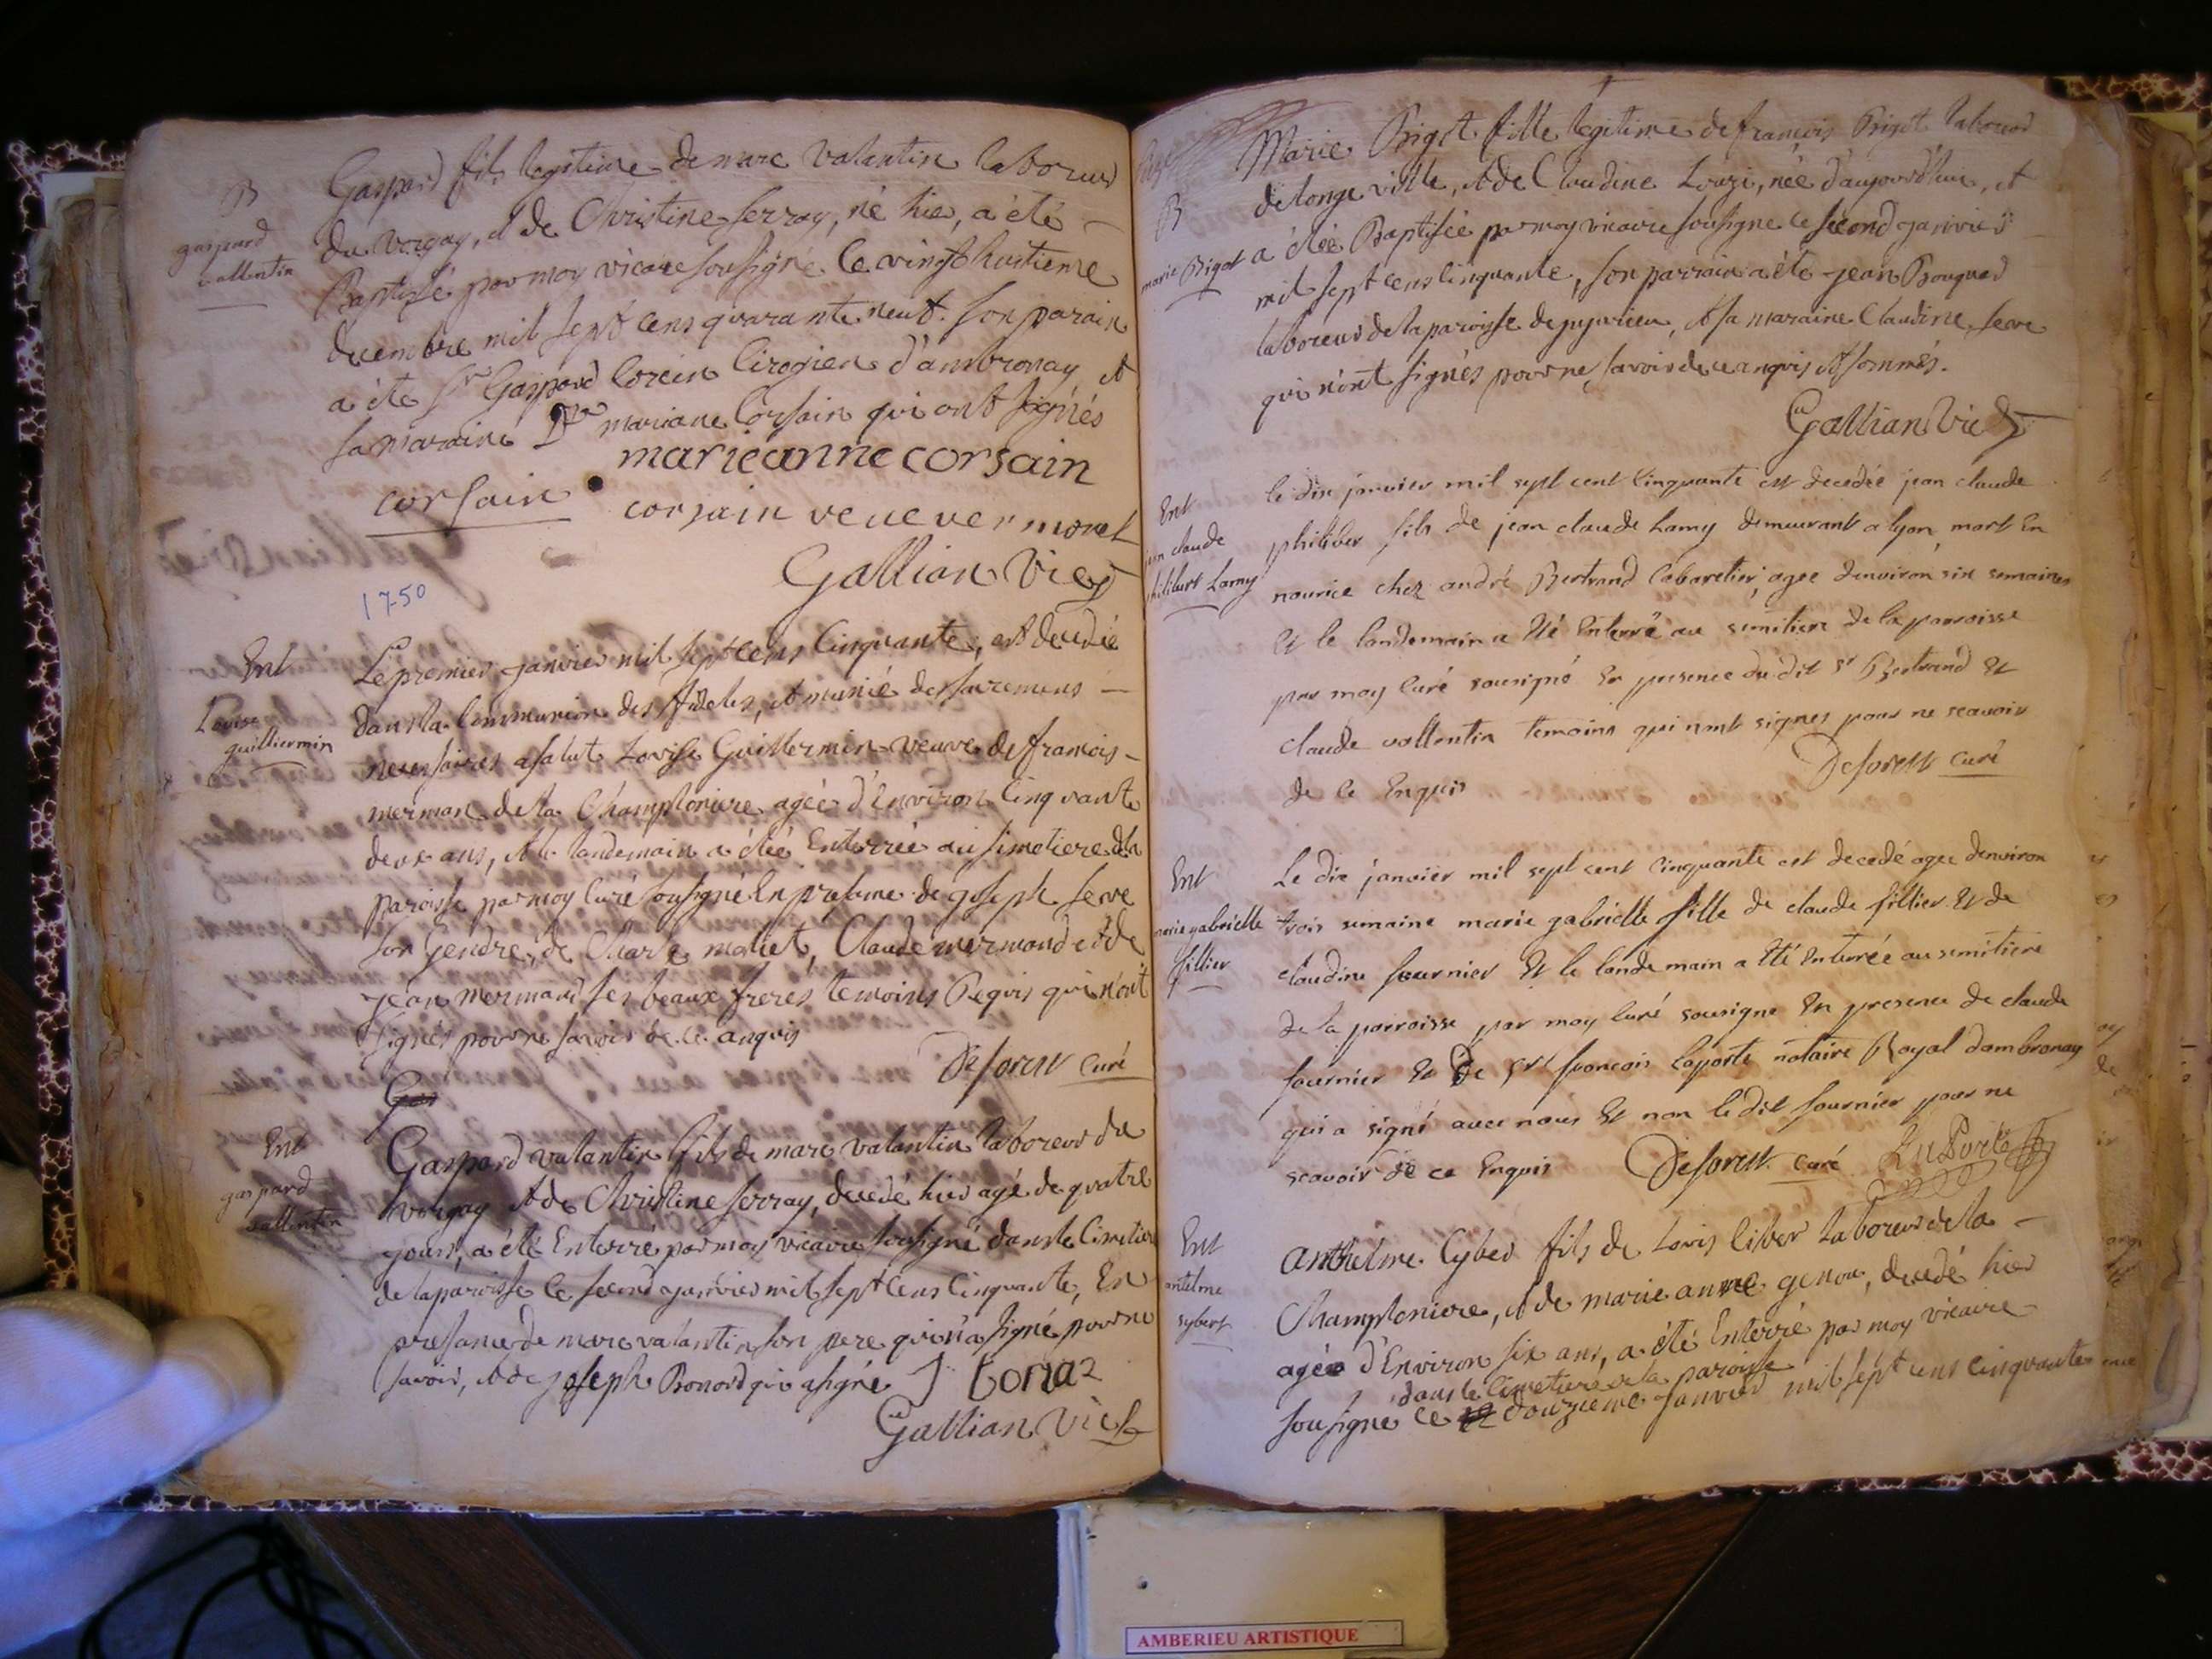 B
gaspard
vallentin
Gaspard fils legitime de marc valantin laboreur
du vorgay, et de Christine serray, né hier, a été
Baptisé par moy vicaire sousigné le vingt huitieme
decembre mil sept cens quarante neuf. son parain
a été Sr Gaspard Corcin Cirogien d'ambronay et
sa maraine Dlle mariane Corsain qui ont signés
marieanne corsain
corsain
corsain veuever moret
Gallian Vic
1750
Ent
Louise
guilliermin
Le premier janvier mil sept cens Cinquante, est decedée
dans la Communion des fideles, et munie des sacremens
necessaires a salut Lovise Guillermin veuve de francois
merman de la Champloniere agée d'Environ Cinquante
deux ans, et le landemain a étée Enterrée au simetiere de la
paroisse par moy Curé sousigné En presance de joseph serve
son Gendre, de Charle maliet, Claude mermand et de
jean mermand ses beaux freres temoins Requis qui n'ont
signés pour ne savoir de ce anquis
Deforest curé
Gas
Ent
gaspard
vallentin
Gaspard valantin fils de marc valantin laboreur du
vorgay et de Christine serray, decedé hier agé de quatre
jours, a été Enterré par moy vicaire sousigné dans le Cimetiere
de la paroisse le second janvier mil sept Cens Cinquante, En
presance de marc valantin son pere qui n'a signé pour ne
savoir, et de joseph Bonard qui a signé J bonaz
Gallian Vic
B
marie Bigot
Marie Bigot fille legitime de francois Bigot laboreur
de longe ville, et de Claudine Louzi, née d'aujourd'huy, et
a étée Baptisée par moy vicaire sousigne le second janvier
mil sept cens Cinquante, son parrain a été jean Bouquard
laboreur de la paroisse de jujurieu, et sa maraine Claudine serve
qui n'ont signés pour ne savoir de ce anquis et sommés.
Gallian Vic
Ent
jean claude
philibert Lamy
le dix janvier mil sept cent Cinquante est decedée jean claude
philiber fils de jean claude Lamy demeurant a lyon, mort En
nourice chez andré Bertrand Cabaretier, agee denviron six semaines
Et le landemain a Eté Enterré au simitiere de la parroisse
par moy Curé sousigné En presence du dit Sr Bertrand Et
claude vallentin temoins qui nont signes pour ne scavoir
de ce Enquis
Deforest curé
Ent
marie gabrielle
fillier
Le dix janvier mil sept cent Cinquante est decedé agee denviron
trois semaine marie gabrielle fille de claude fillier Et de
claudine fournier Et le lande main a Eté Enterrée au simitiere
de la parroisse par moy Curé sousigne En presence de claude
fournier Et de Sr francois Laporte notaire Royal dambronay
qui a signé avec nous Et non le dit fournier pour ne
scavoir de ce Enquis Deforest curé LaPorte
Ent
antelme
sybert
Anthelme Cyber fils de Lovis Ciber laboreur de la
Champloniere, et de marie anne genou, decedé hier
agée d'Environ six ans, a été Enterré par moy vicaire
dans le Cimetiere de la paroisse
sousigne ce 12 douzieme janvier mil sept cens cinquante
AMBERIEU ARTISTIQUE